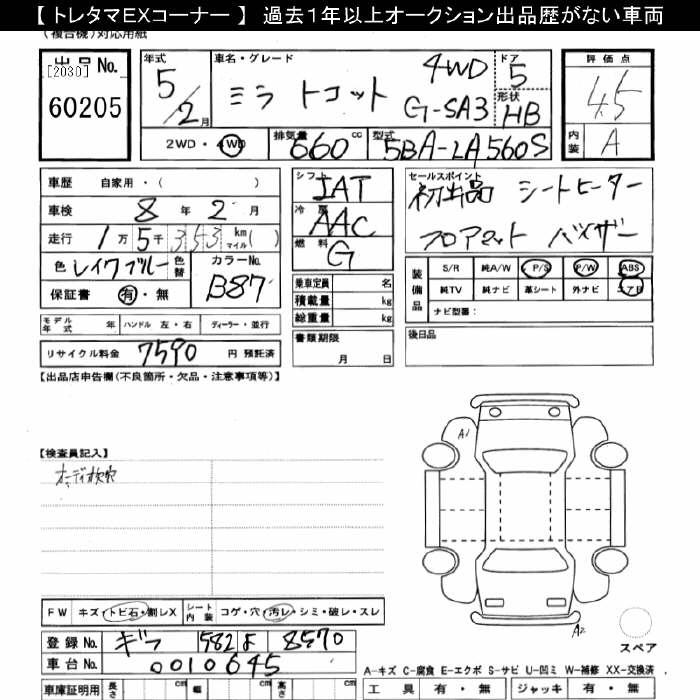 【 トレタマEXコーナー 】 過去1年以上オークション出品歴がない車両
(複合機)対応用紙
出品No.
[2030]
60205
年式
5/2月
車名・グレード
ミラ トコット
4WD
G-SA3
ドア
5
形状
HB
評価点
4.5
内装
A
2WD・4WD
排気量
660 cc
型式
5BA-LA560S
車歴 自家用・( )
車検 8年2月
走行 1万5千353 km マイル( )
色 レイクブルー 色替
カラーNo.
B87
保証書 有・無
シフト
IAT
冷房
AAC
燃料
G
セールスポイント
初出品 シートヒーター
フロアマット バイザー
乗車定員 名
積載量 kg
総重量 kg
装備品
S/R 純A/W P/S P/W ABS
純TV 純ナビ 革シート 外ナビ エアB
ナビ型番:
モデル年式 年 ハンドル 左・右 ディーラー・並行
リサイクル料金 7590 円 預託済
書類期限
月 日
後日品
【出品店申告欄(不良箇所・欠品・注意事項等)】
【検査員記入】
オーディオ欠穴
A1
A2
スペア
FW キズ・トビ石・割レX シート内装 コゲ・穴・汚レ・シミ・破レ・スレ
登録No. ギフ 582 よ 8570
車台No. 0010645
車庫証明用 長さ cm 幅 cm 高さ cm
A-キズ C-腐食 E-エクボ S-サビ U-凹ミ W-補修 XX-交換済
工具 有・無 ジャッキ 有・無